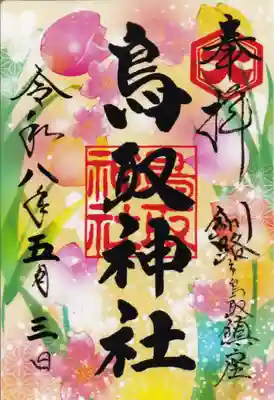 奉拝
釧路市鳥取鎮座
鳥取神社
鳥取
神社
令和八年五月三日